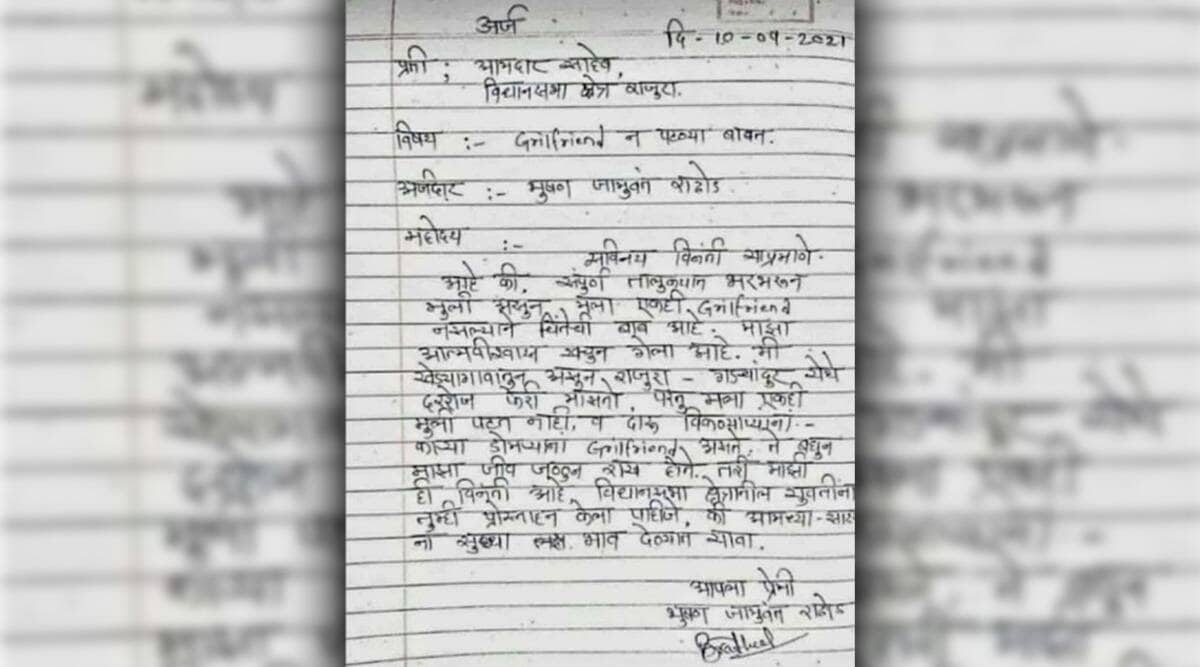 अर्ज
दि - 10-09-2021
प्रती ; आमदार साहेब,
विधानसभा क्षेत्र राजुरा.
विषय :- Grilfriend न पटण्या बाबत.
अर्जदार :- भुषण जामुवंत राठोड
महोदय :-
सविनय विनंती याप्रमाणे
आहे की, संपुर्ण तालुक्यात भरभरून
मुली असुन, मला एकही Grilfriend
नसल्याने चिंतेची बाब आहे. माझा
आत्मवीश्वास खचुन गेला आहे. मी
खेड्यागावातुन असुन राजुरा - गडचांदुर येथे
दररोज फेरी मारतो, परंतु मला एकही
मुली पटत नाही. व दारू विकणाऱ्याला -
काऱ्या डोमऱ्याला Grilfriend असते, ते बघुन
माझा जीव जळुन राख होते. तरी माझी
ही विनंती आहे, विधानसभा क्षेत्रातील युवतींना
तुम्ही प्रोत्साहन केला पाहीजे, की आमच्या-सार
ना सुध्दा भाव देण्यात यावा.
आपला प्रेमी
भुषण जामुवंत राठोड